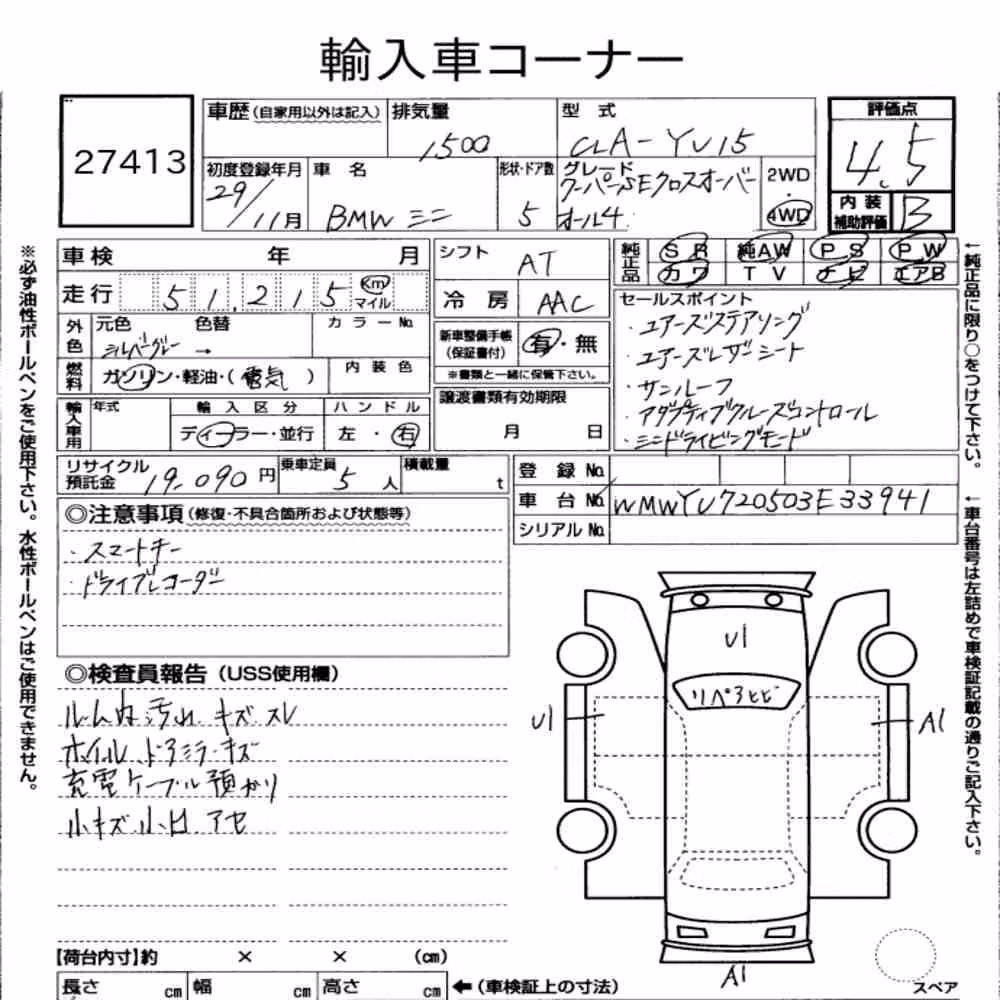 輸入車コーナー
27413
車歴(自家用以外は記入)
排気量
1500
型 式
CLA-YU15
評価点
4.5
初度登録年月
29/11月
車 名
BMW ミニ
形状・ドア数
5
グレード
クーパーSEクロスオーバー
オール4
2WD
・
4WD
内 装
補助評価
B
車検 年 月
シフト
AT
純正品
SR 純AW PS PW
カワ TV ナビ エアB
走行 51,215 Km
マイル
冷 房
AAC
セールスポイント
・ユアーズステアリング
・ユアーズレザーシート
・サンルーフ
・アダプティブクルーズコントロール
・ミニドライビングモード
外色
元色 色替
シルバーグレー →
カラーNo.
新車整備手帳
(保証書付)
有・無
※書類と一緒に保管下さい。
燃料
ガソリン・軽油・(電気)
内 装 色
譲渡書類有効期限
月 日
輸入車用
年式
輸 入 区 分
ディーラー・並行
ハ ン ド ル
左 ・ 右
リサイクル
預託金
19.090円
乗車定員
5人
積載量
t
登 録 No.
車 台 No. WMWYU720503E33941
シリアル No.
◎注意事項(修復・不具合箇所および状態等)
・スマートキー
・ドライブレコーダー
◎検査員報告(USS使用欄)
ルーム内汚れ.キズ.スレ
ホイル.ドアミラーキズ
充電ケーブル預かり
小キズ小凹アセ
U1
リペアヒビ
U1
A1
A1
スペア
【荷台内寸】約 × × (cm)
長さ cm 幅 cm 高さ cm
←(車検証上の寸法)
※必ず油性ボールペンをご使用下さい。水性ボールペンはご使用できません。
←純正品に限り○をつけて下さい。
←車台番号は左詰めで車検証記載の通りご記入下さい。